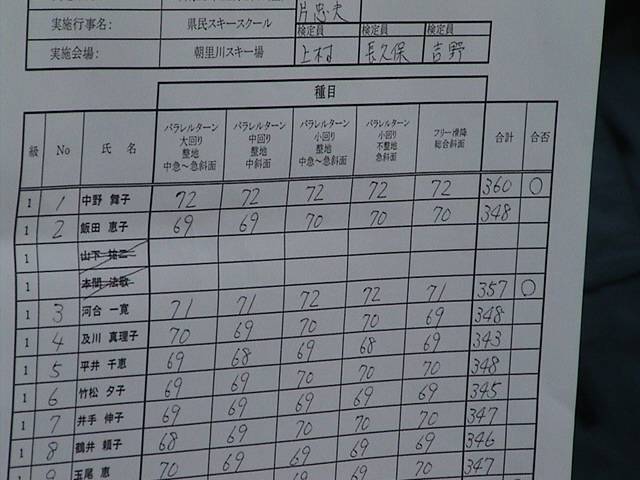 片忠夫
実施行事名: 県民スキースクール 検定員 検定員 検定員
実施会場: 朝里川スキー場 上村 長久保 吉野
種目
級 No 氏 名 パラレルターン 大回り 整地 中急～急斜面 パラレルターン 中回り 整地 中斜面 パラレルターン 小回り 整地 中急～急斜面 パラレルターン 小回り 不整地 急斜面 フリー滑降 総合斜面 合計 合否
1 1 中野 舞子 72 72 72 72 72 360 ○
1 2 飯田 恵子 69 69 70 70 70 348
1 山下 雄二
1 本間 法敬
1 3 河合 一寛 71 71 72 72 71 357 ○
1 4 及川 真理子 70 69 70 70 69 348
1 5 平井 千恵 69 68 69 68 69 343
1 6 竹松 夕子 69 69 70 70 70 348
1 7 井手 伸子 69 69 69 69 69 345
1 8 鶴井 頼子 68 69 70 70 70 347
1 9 玉尾 恵 70 69 69 69 69 346
69 69 70 347